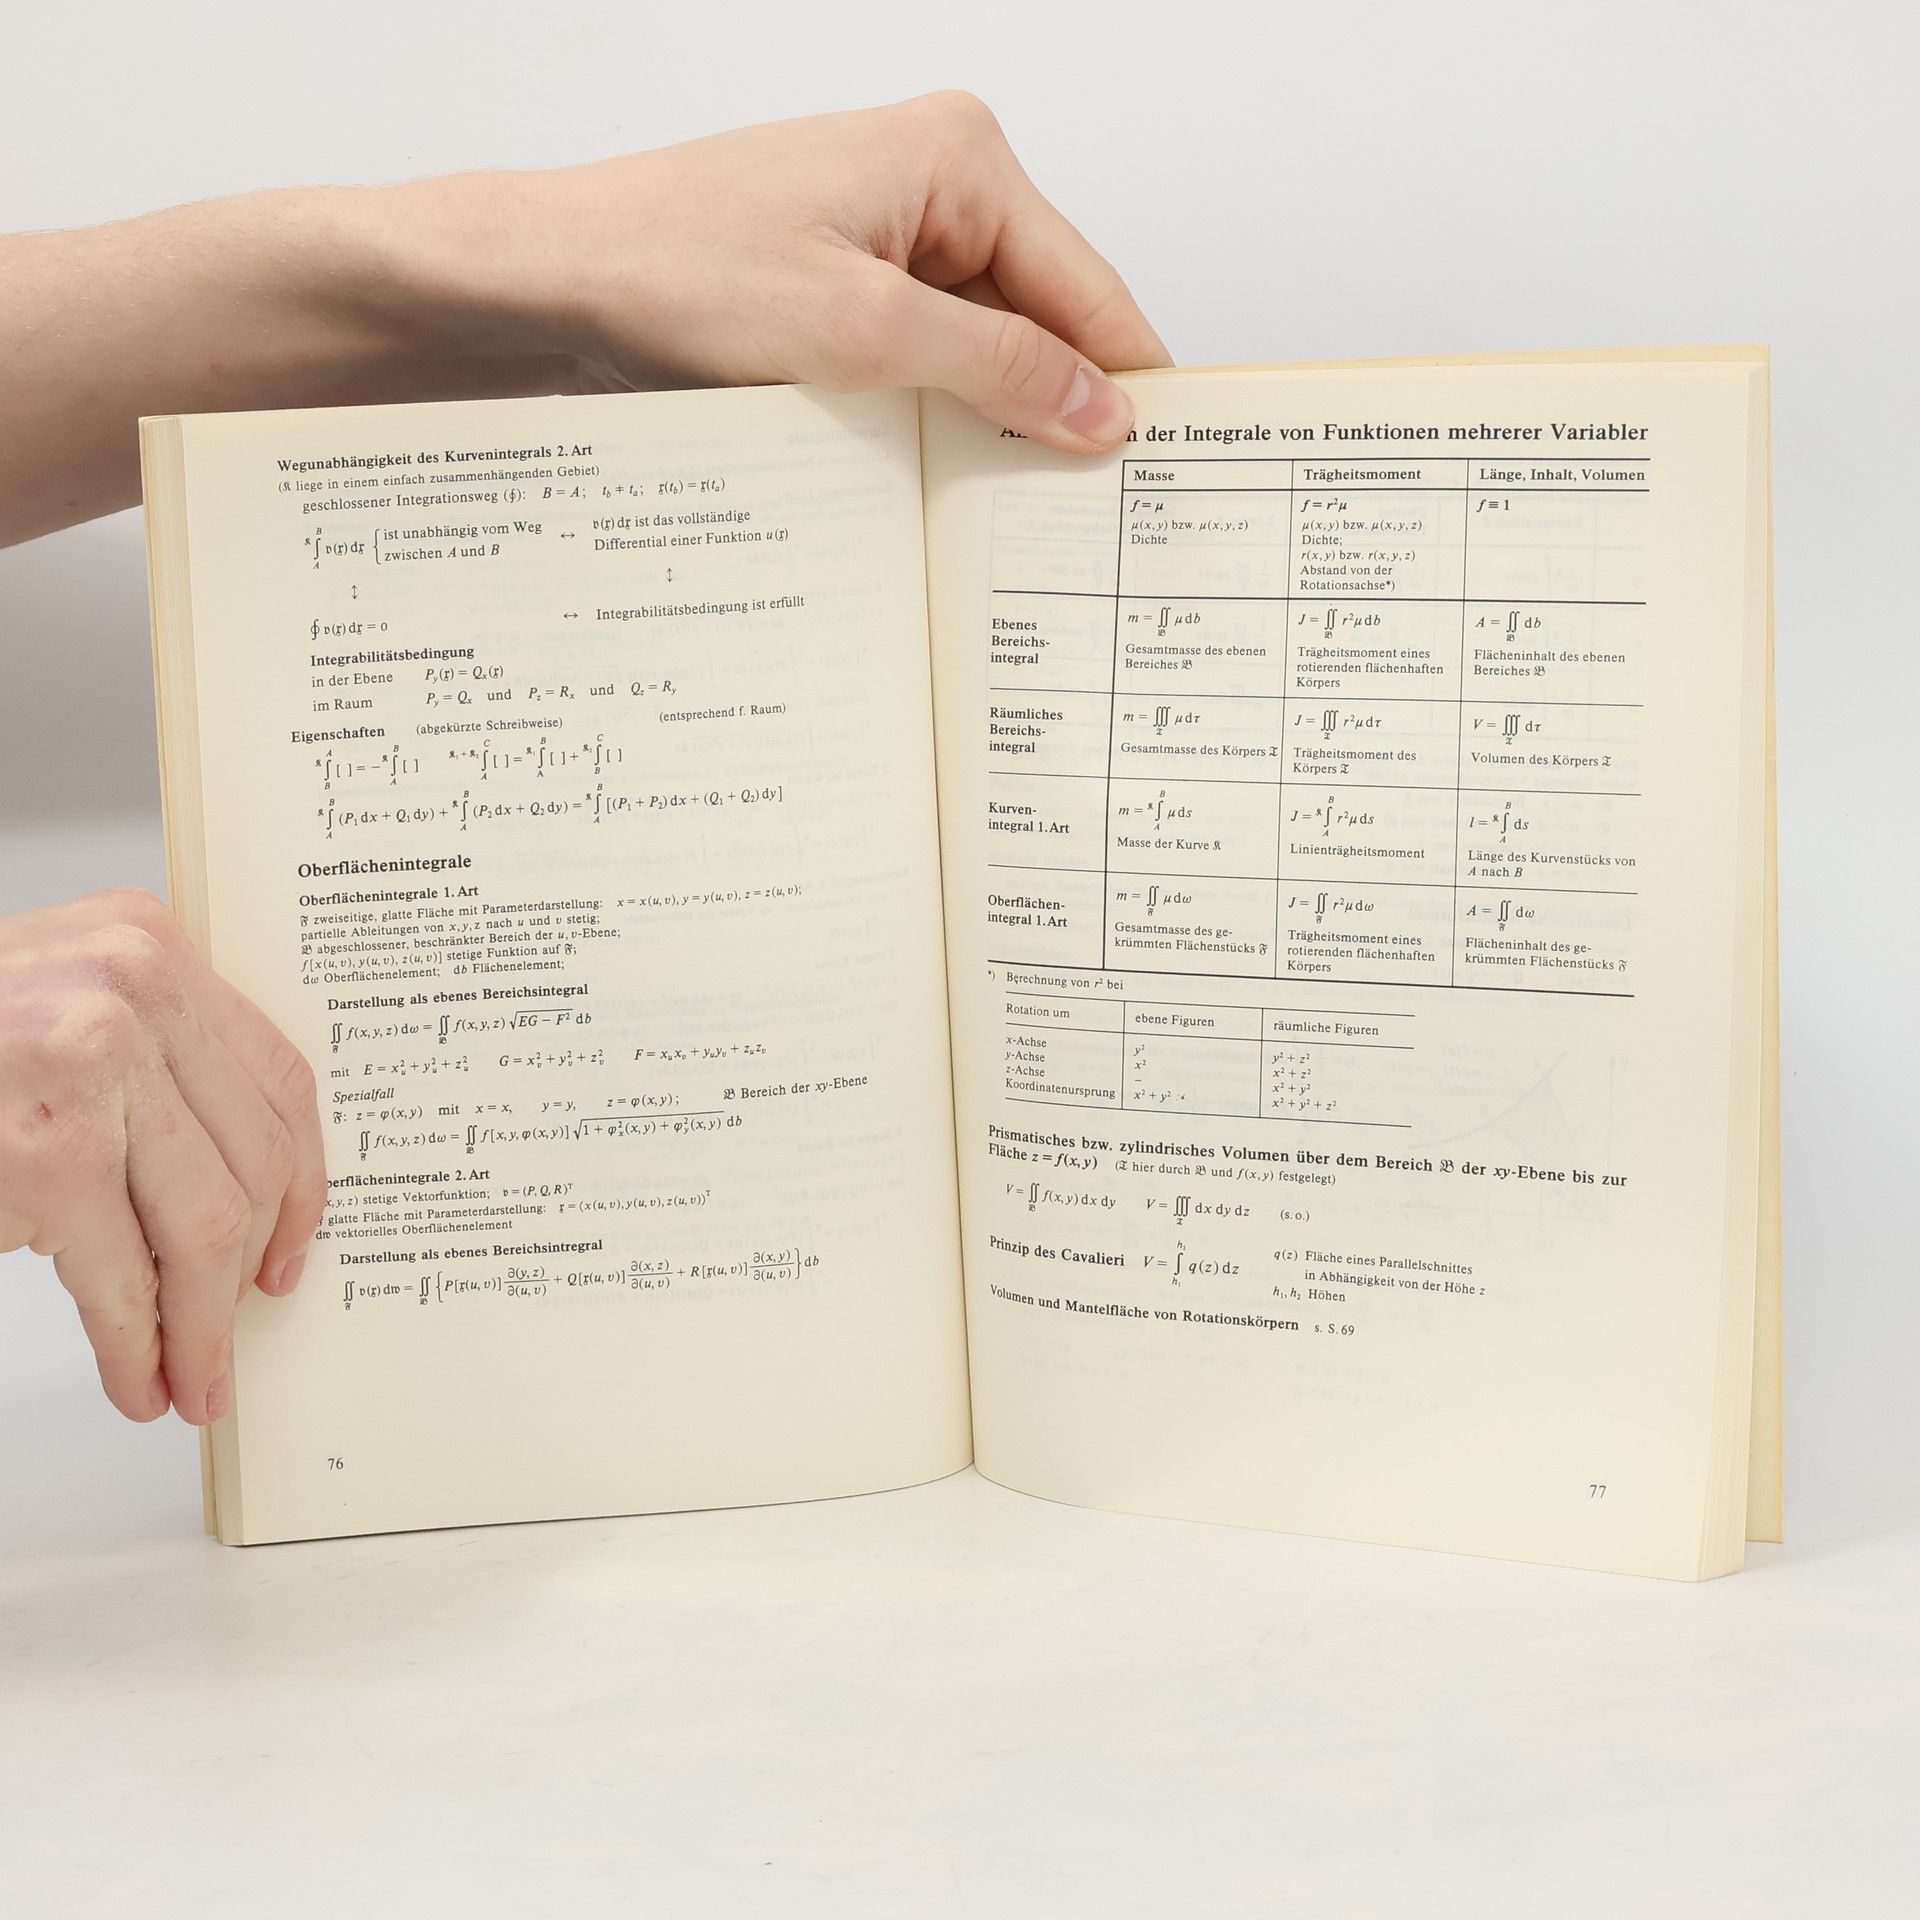 Wegunabhängigkeit des Kurvenintegrals 2. Art
(𝔎 liege in einem einfach zusammenhängenden Gebiet)
geschlossener Integrationsweg (∮): B = A; t_b ≠ t_a; 𝔵(t_b) = 𝔵(t_a)
𝔎∫_A^B 𝔳(𝔵) d𝔵 { ist unabhängig vom Weg zwischen A und B ↔ 𝔳(𝔵) d𝔵 ist das vollständige Differential einer Funktion u(𝔵)
↕ ↕
∮ 𝔳(𝔵) d𝔵 = 0 ↔ Integrabilitätsbedingung ist erfüllt
Integrabilitätsbedingung
in der Ebene P_y(𝔵) = Q_x(𝔵)
im Raum P_y = Q_x und P_z = R_x und Q_z = R_y
Eigenschaften (abgekürzte Schreibweise) (entsprechend f. Raum)
𝔎∫_B^A [ ] = −𝔎∫_A^B [ ] 𝔎₁+𝔎₂∫_A^C [ ] = 𝔎₁∫_A^B [ ] + 𝔎₂∫_B^C [ ]
𝔎∫_A^B (P₁ dx + Q₁ dy) + 𝔎∫_A^B (P₂ dx + Q₂ dy) = 𝔎∫_A^B [(P₁ + P₂) dx + (Q₁ + Q₂) dy]
Oberflächenintegrale
Oberflächenintegrale 1. Art
𝔉 zweiseitige, glatte Fläche mit Parameterdarstellung: x = x(u, v), y = y(u, v), z = z(u, v);
partielle Ableitungen von x, y, z nach u und v stetig;
𝔅 abgeschlossener, beschränkter Bereich der u, v-Ebene;
f[x(u, v), y(u, v), z(u, v)] stetige Funktion auf 𝔉;
dω Oberflächenelement; db Flächenelement;
Darstellung als ebenes Bereichsintegral
∬_𝔉 f(x, y, z) dω = ∬_𝔅 f(x, y, z) √(EG − F²) db
mit E = x_u² + y_u² + z_u² G = x_v² + y_v² + z_v² F = x_u x_v + y_u y_v + z_u z_v
Spezialfall
𝔉: z = φ(x, y) mit x = x, y = y, z = φ(x, y); 𝔅 Bereich der xy-Ebene
∬_𝔉 f(x, y, z) dω = ∬_𝔅 f[x, y, φ(x, y)] √(1 + φ_x²(x, y) + φ_y²(x, y)) db
berflächenintegrale 2. Art
x, y, z) stetige Vektorfunktion; 𝔳 = (P, Q, R)ᵀ
glatte Fläche mit Parameterdarstellung: 𝔵 = (x(u, v), y(u, v), z(u, v))ᵀ
d𝔴 vektorielles Oberflächenelement
Darstellung als ebenes Bereichsintregral
∬_𝔉 𝔳(𝔵) d𝔴 = ∬_𝔅 {P[𝔵(u, v)] ∂(y, z)/∂(u, v) + Q[𝔵(u, v)] ∂(x, z)/∂(u, v) + R[𝔵(u, v)] ∂(x, y)/∂(u, v)} db
76
der Integrale von Funktionen mehrerer Variabler
Masse Trägheitsmoment Länge, Inhalt, Volumen
f = μ f = r²μ f ≡ 1
μ(x, y) bzw. μ(x, y, z) μ(x, y) bzw. μ(x, y, z)
Dichte Dichte;
r(x, y) bzw. r(x, y, z)
Abstand von der
Rotationsachse*)
Ebenes Bereichs-integral m = ∬_𝔅 μ db J = ∬_𝔅 r²μ db A = ∬_𝔅 db
Gesamtmasse des ebenen Bereiches 𝔅 Trägheitsmoment eines rotierenden flächenhaften Körpers Flächeninhalt des ebenen Bereiches 𝔅
Räumliches Bereichs-integral m = ∭_𝔗 μ dτ J = ∭_𝔗 r²μ dτ V = ∭_𝔗 dτ
Gesamtmasse des Körpers 𝔗 Trägheitsmoment des Körpers 𝔗 Volumen des Körpers 𝔗
Kurven-integral 1. Art m = 𝔎∫_A^B μ ds J = 𝔎∫_A^B r²μ ds l = 𝔎∫_A^B ds
Masse der Kurve 𝔎 Linienträgheitsmoment Länge des Kurvenstücks von A nach B
Oberflächen-integral 1. Art m = ∬_𝔉 μ dω J = ∬_𝔉 r²μ dω A = ∬_𝔉 dω
Gesamtmasse des ge-krümmten Flächenstücks 𝔉 Trägheitsmoment eines rotierenden flächenhaften Körpers Flächeninhalt des ge-krümmten Flächenstücks 𝔉
*) Berechnung von r² bei
Rotation um ebene Figuren räumliche Figuren
x-Achse y² y² + z²
y-Achse x² x² + z²
z-Achse – x² + y²
Koordinatenursprung x² + y² x² + y² + z²
Prismatisches bzw. zylindrisches Volumen über dem Bereich 𝔅 der xy-Ebene bis zur
Fläche z = f(x, y) (𝔗 hier durch 𝔅 und f(x, y) festgelegt)
V = ∬_𝔅 f(x, y) dx dy V = ∭_𝔗 dx dy dz (s. o.)
Prinzip des Cavalieri V = ∫_h₁^h₂ q(z) dz q(z) Fläche eines Parallelschnittes
in Abhängigkeit von der Höhe z
h₁, h₂ Höhen
Volumen und Mantelfläche von Rotationskörpern s. S. 69
77